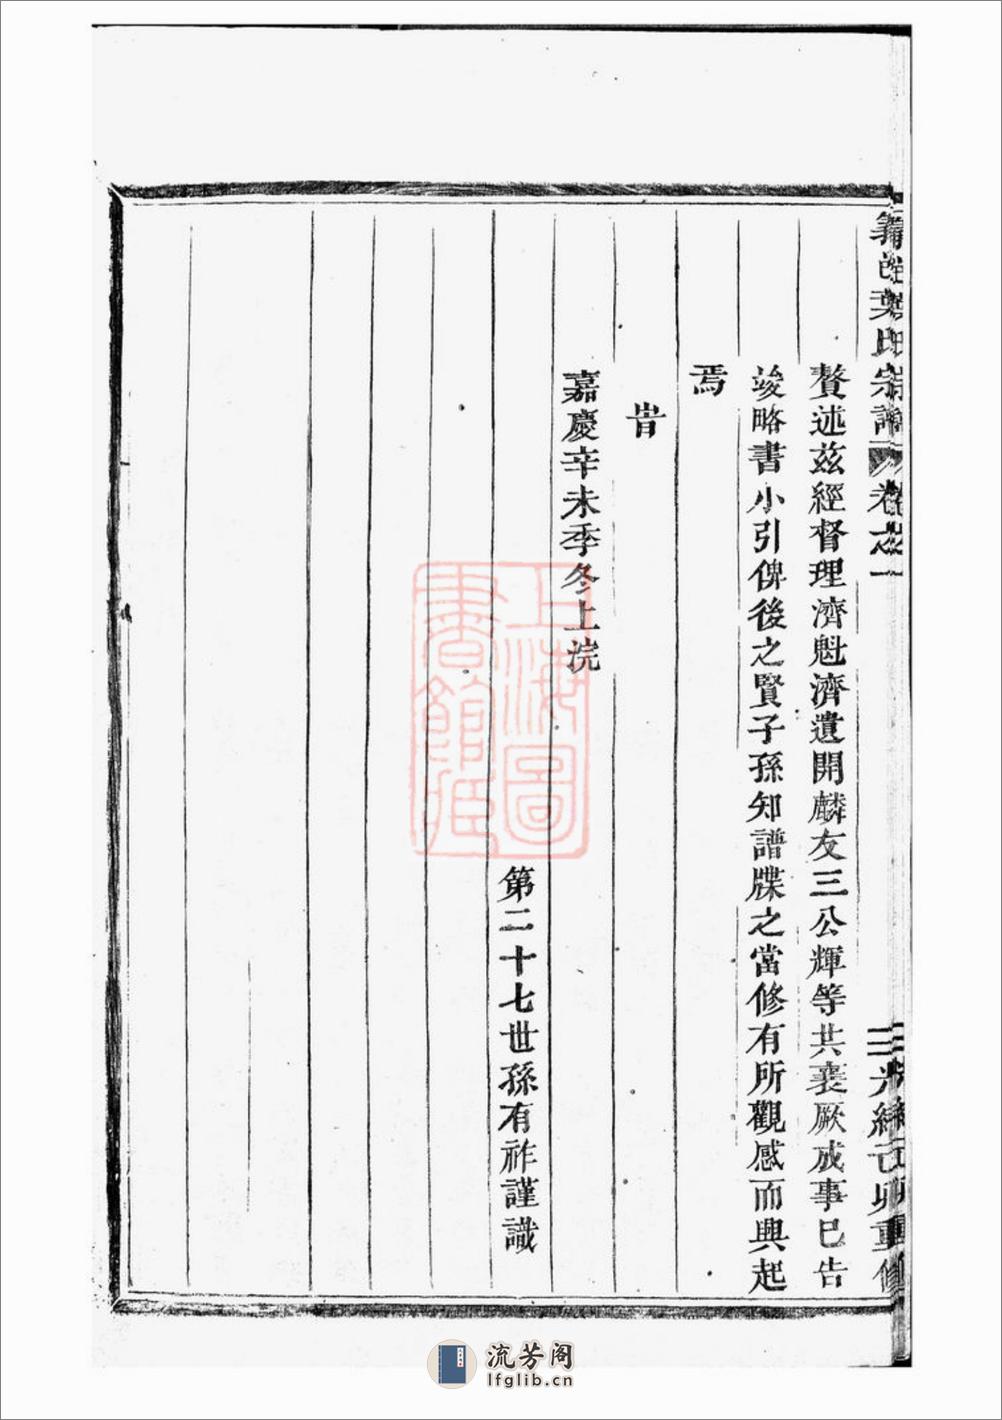 贅述茲經督理濟魁濟遺開麟友三公輝等共襄厥成事巳告
竣略書小引俾後之賢子孫知譜牒之當修有所觀感而興起
焉
旹
嘉慶辛未季冬上浣
第二十七世孫有祚謹識
葉氏宗譜
卷之一
三
光緒己卯重修
上海圖書館藏
流芳阁
lfglib.cn